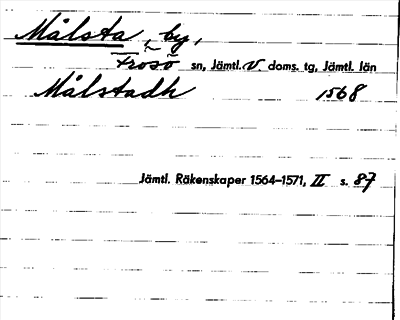 Målsta, by,
Frösö sn, Jämtl. V. doms. tg, Jämtl. län
Målstadh 1568
Jämtl. Räkenskaper 1564–1571, II s. 87